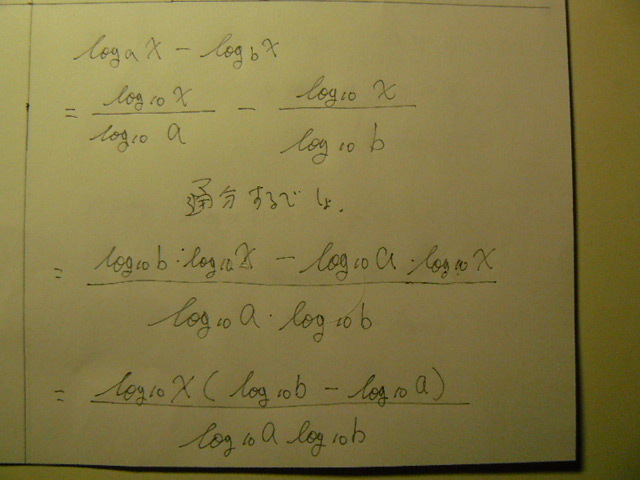 logₐx − log_b x
= log₁₀x / log₁₀a − log₁₀x / log₁₀b
通分するでしょ.
= (log₁₀b・log₁₀x − log₁₀a・log₁₀x) / (log₁₀a・log₁₀b)
= log₁₀x(log₁₀b − log₁₀a) / (log₁₀a log₁₀b)